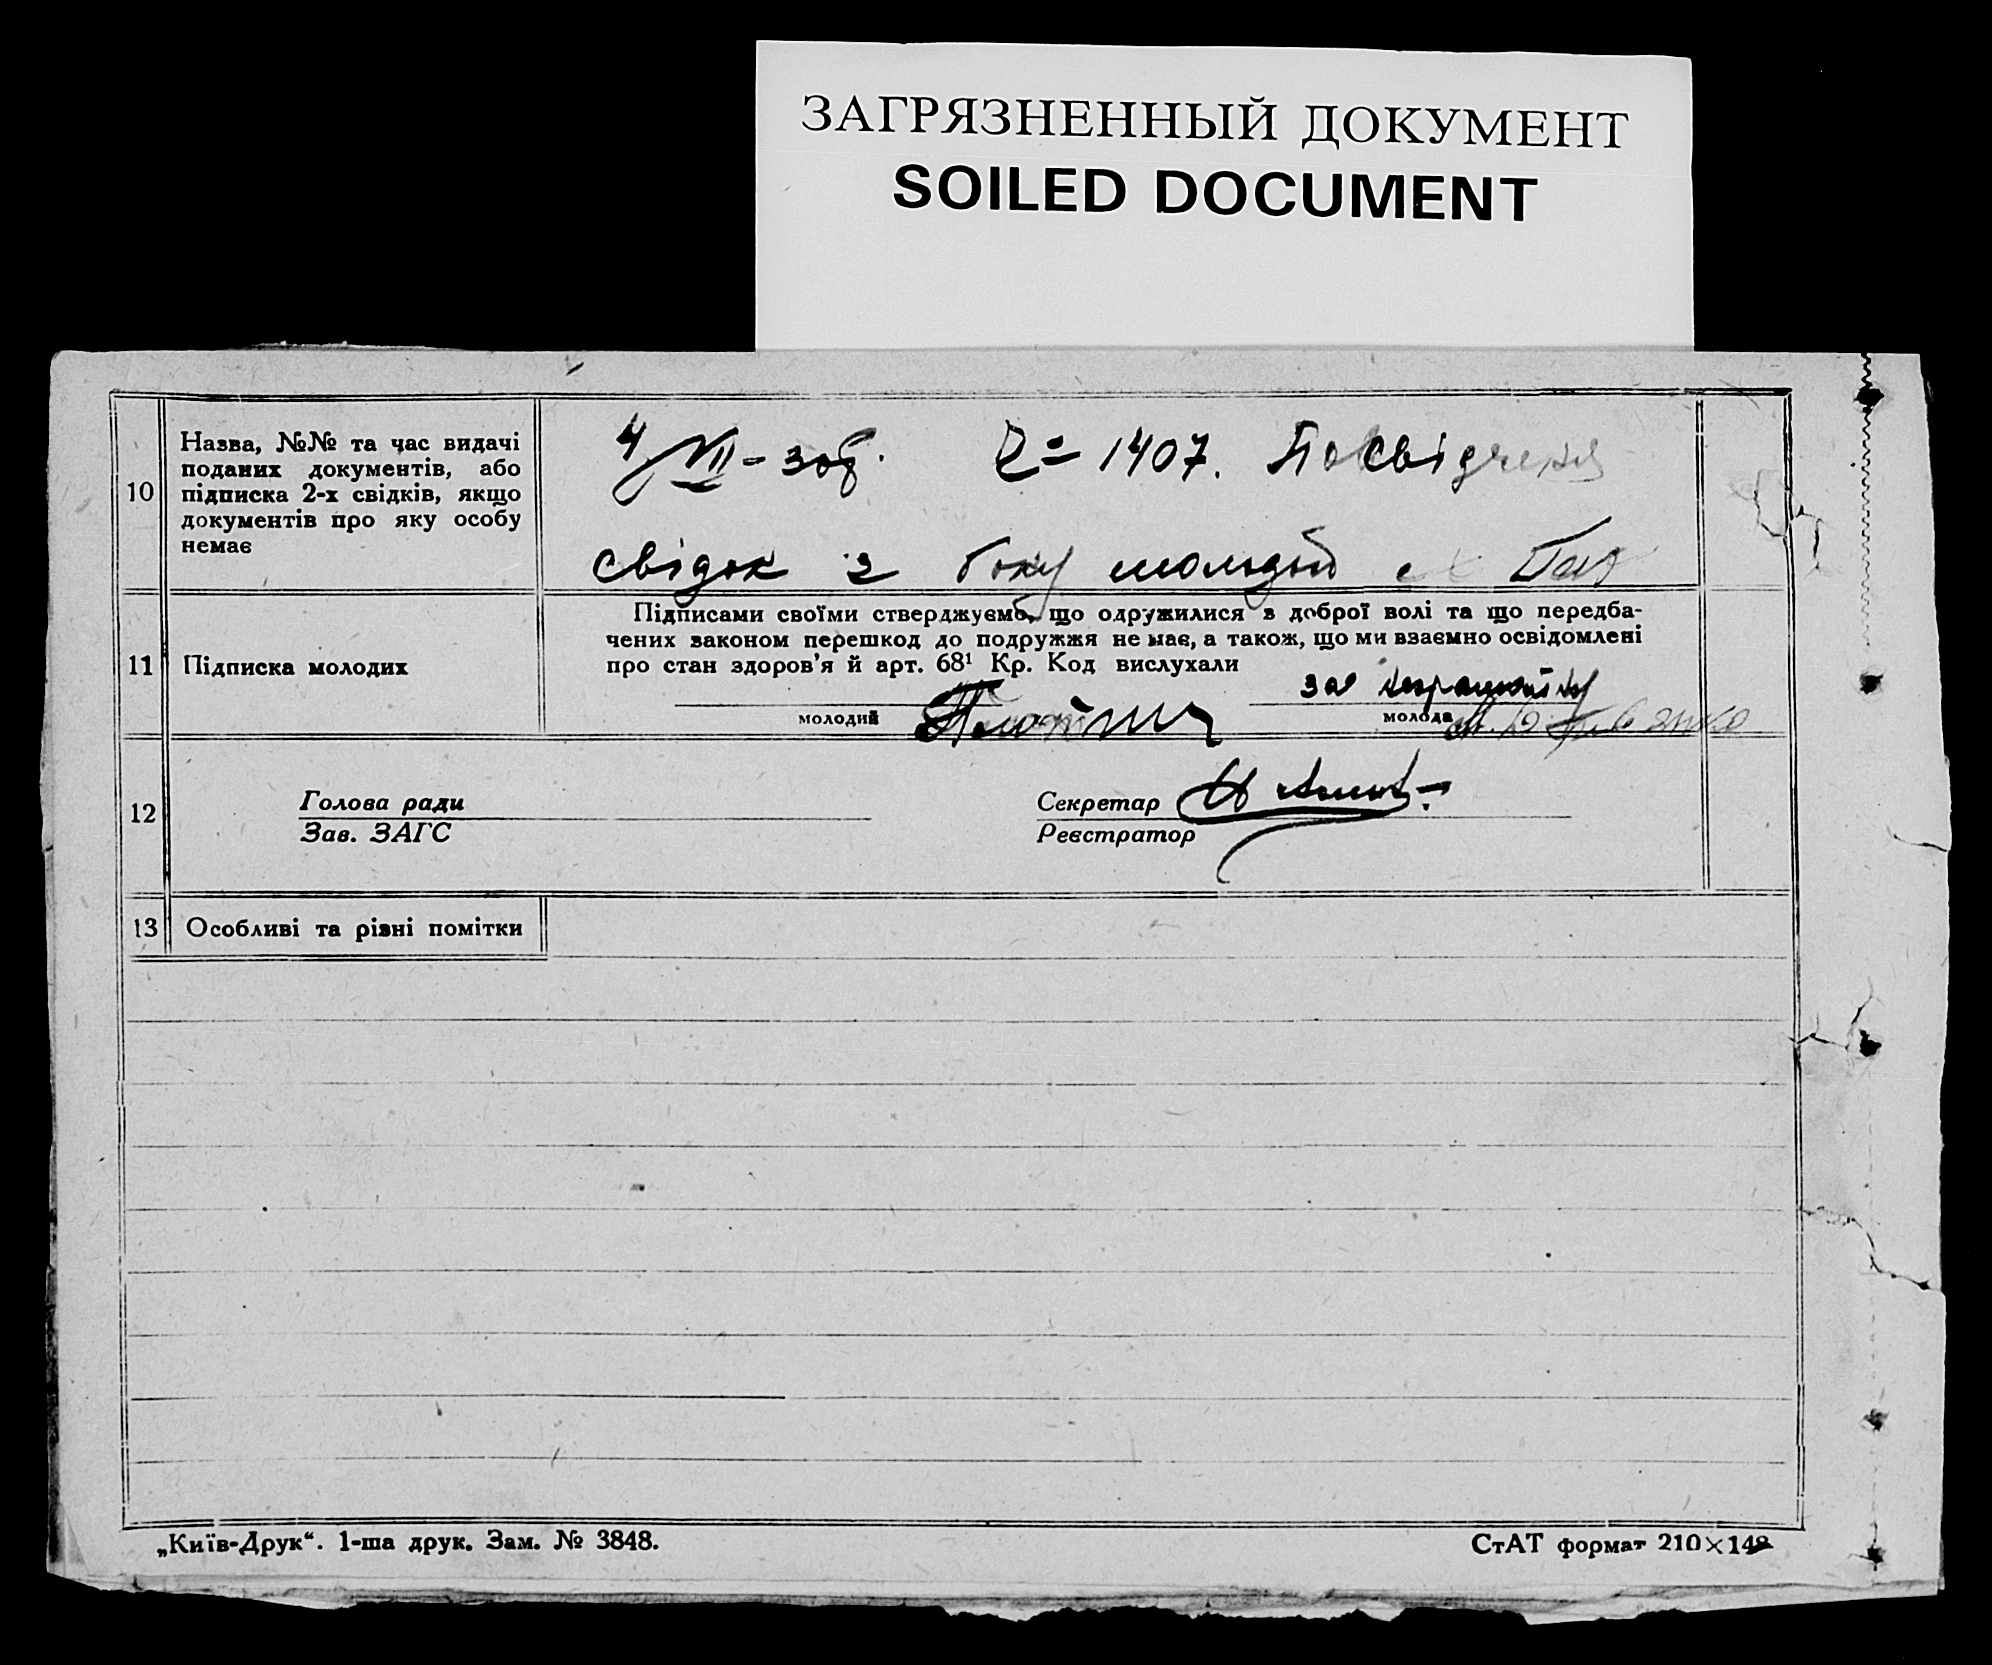 ЗАГРЯЗНЕННЫЙ ДОКУМЕНТ
SOILED DOCUMENT
10
Назва, №№ та час видачі
поданих документів, або
підписка 2-х свідків, якщо
документів про яку особу
немає
4/VII - 30 р. 1407. Посвідчення
свідок з боку молодой
11
Підписка молодих
Підписами своїми стверджуємо, що одружилися з доброї волі та що передба-
чених законом перешкод до подружжя не має, а також, що ми взаємно освідомлені
про стан здоров'я й арт. 68¹ Кр. Код вислухали
за неграмотну
молодий
молода
12
Голова ради
Зав. ЗАГС
Секретар
Реєстратор
13
Особливі та різні помітки
„Київ-Друк“. 1-ша друк. Зам. № 3848.
СтАТ формат 210×148